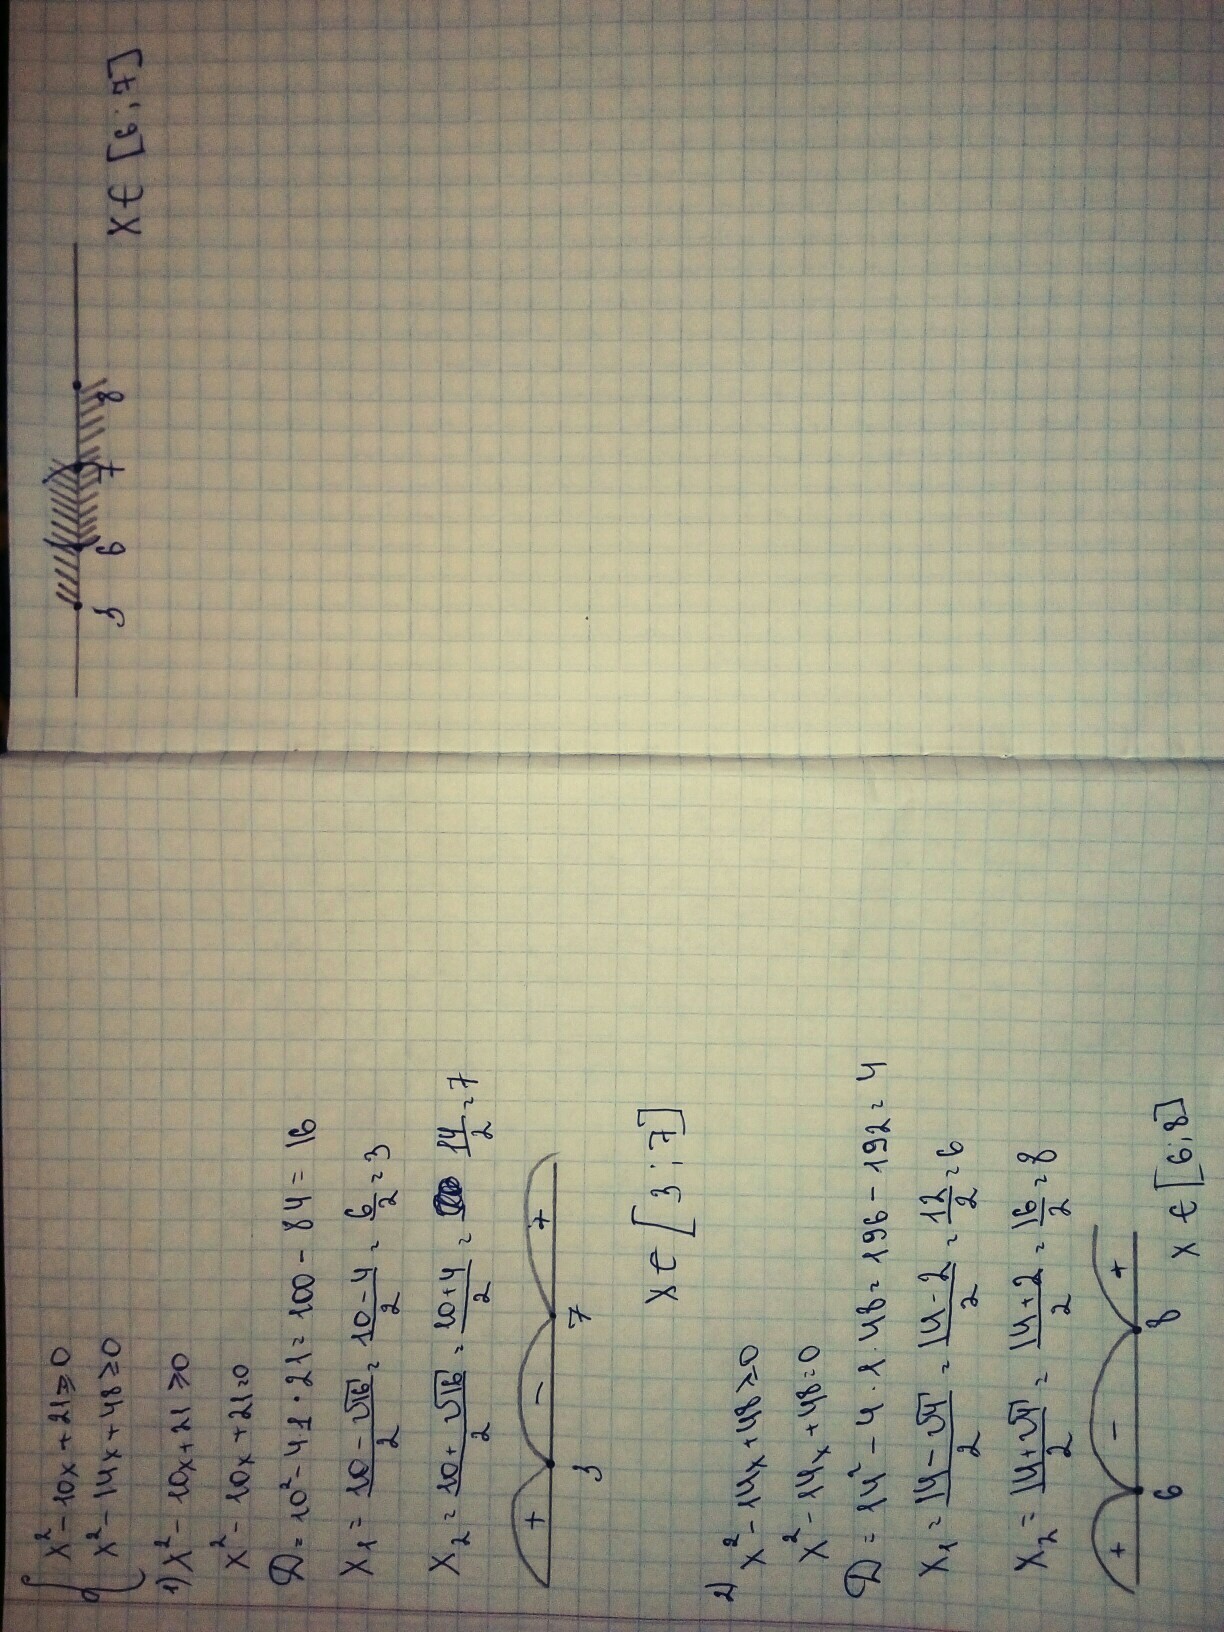 x² - 10x + 21 ≥ 0
x² - 14x + 48 ≥ 0
1) x² - 10x + 21 ≥ 0
x² - 10x + 21 = 0
D = 10² - 4·1·21 = 100 - 84 = 16
x₁ = (10 - √16)/2 = (10 - 4)/2 = 6/2 = 3
x₂ = (10 + √16)/2 = (10 + 4)/2 = 14/2 = 7
+ - +
3 7
x ∈ [3; 7]
2) x² - 14x + 48 ≥ 0
x² - 14x + 48 = 0
D = 14² - 4·1·48 = 196 - 192 = 4
x₁ = (14 - √4)/2 = (14 - 2)/2 = 12/2 = 6
x₂ = (14 + √4)/2 = (14 + 2)/2 = 16/2 = 8
+ - +
6 8
x ∈ [6; 8]
3 6 7 8
x ∈ [6; 7]